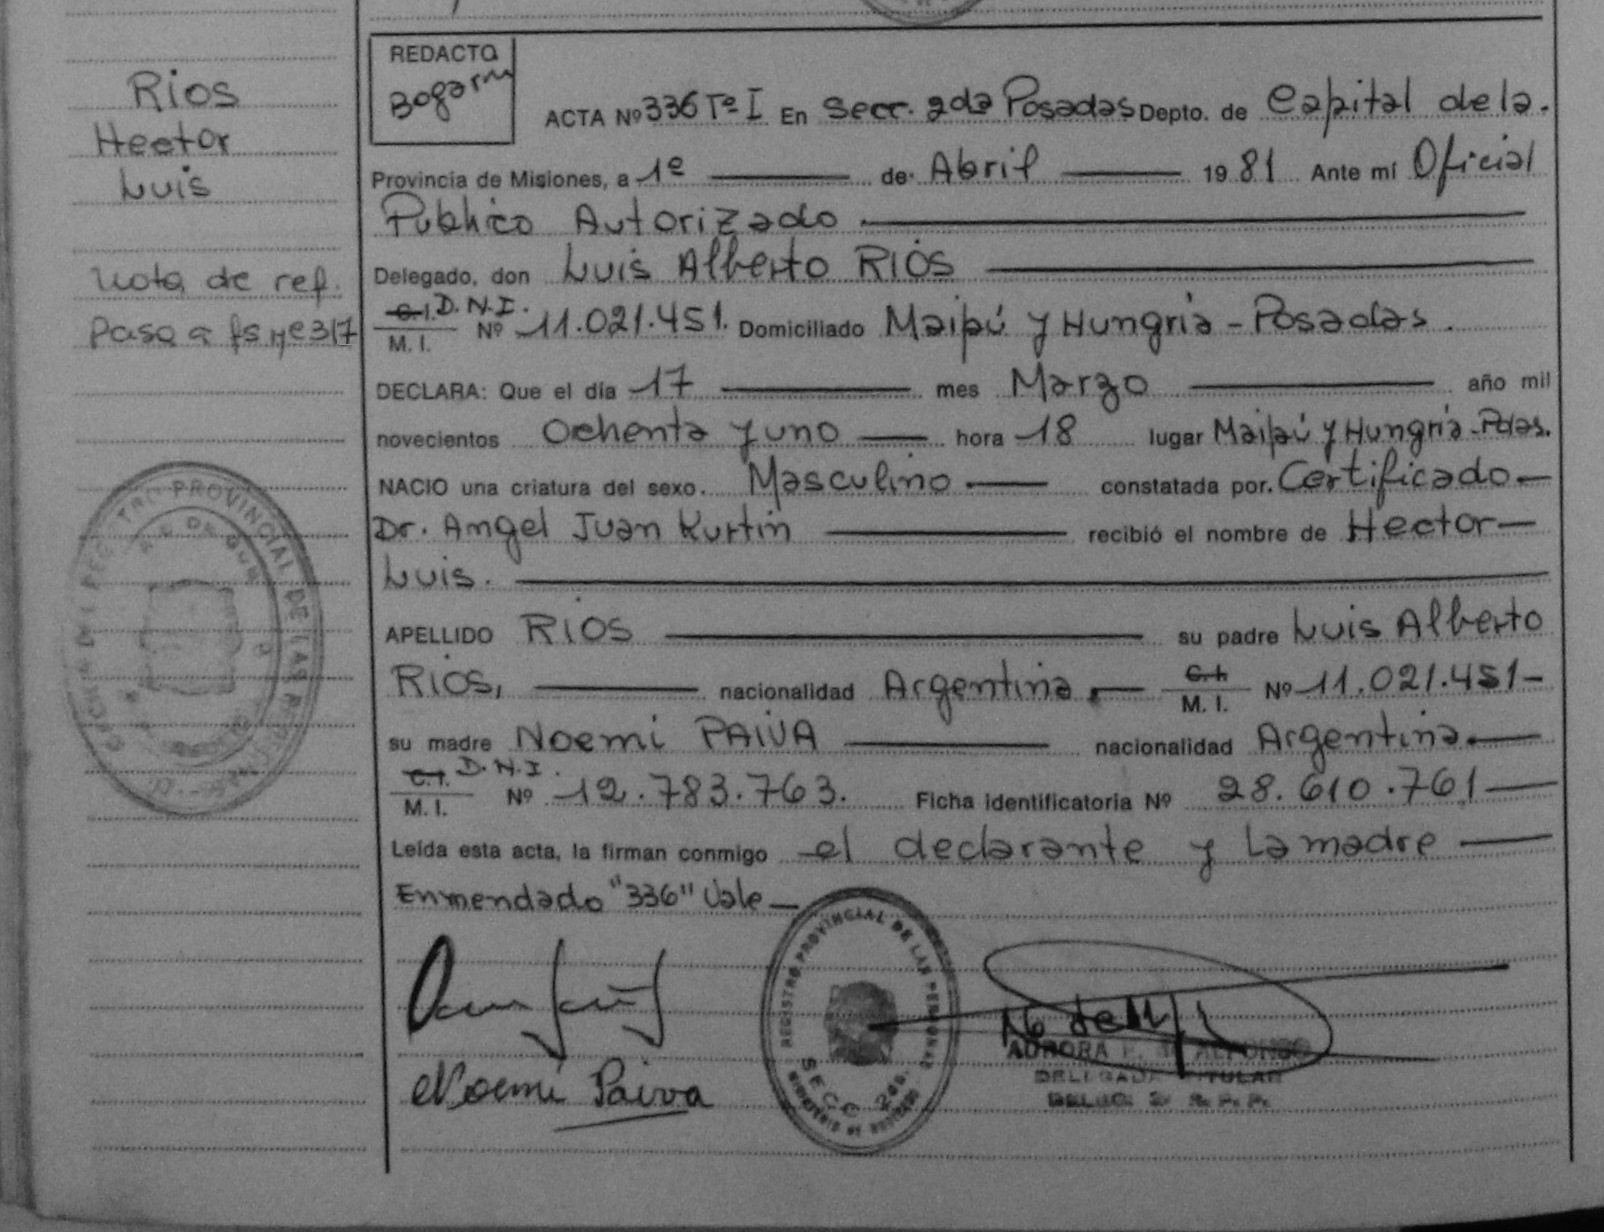 Rios
Hector
Luis
Nota de ref.
Pasa a fs nº 317
REDACTO
Bogarin
ACTA Nº 336 Tº I En Secc. 2da Posadas Depto. de Capital de la.
Provincia de Misiones, a 1º de Abril 19 81 Ante mí Oficial
Publico Autorizado
Delegado, don Luis Alberto RIOS
C.I. D.N.I.
M. I. Nº 11.021.451. Domiciliado Maipú y Hungria - Posadas.
DECLARA: Que el día 17 mes Marzo año mil
novecientos Ochenta y uno hora 18 lugar Maipú y Hungria - Pdas.
NACIO una criatura del sexo. Masculino constatada por. Certificado
Dr. Angel Juan Kurtin recibió el nombre de Hector
Luis.
APELLIDO RIOS su padre Luis Alberto
RIOS, nacionalidad Argentina. C.I. M. I. Nº 11.021.451-
su madre Noemi PAIVA nacionalidad Argentina.
C.I. D.N.I.
M. I. Nº 12.783.763. Ficha identificatoria Nº 28.610.761
Leída esta acta, la firman conmigo el declarante y la madre
Enmendado "336" Vale
Noemi Paiva
REGISTRO PROVINCIAL DE LAS PERSONAS
SECC. 2da.
AURORA ALFONSO
DELEGADA TITULAR
REGISTRO PROVINCIAL DE LAS PERSONAS